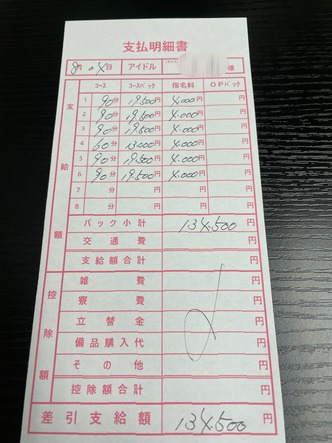 支払明細書
8月 4日 アイドル 様
コース コースバック 指名料 OPバック
支給額
1 90分 19.500円 4.000円 円
2 90分 19.500円 4.000円 円
3 90分 19.500円 4.000円 円
4 60分 13.000円 4.000円 円
5 90分 19.500円 4.000円 円
6 90分 19.500円 4.000円 円
7 分 円 円 円
8 分 円 円 円
バック小計 134.500円
交通費 円
支給額合計 円
控除額
雑費 円
寮費 円
立替金 円
備品購入代 円
その他 円
控除額合計 円
差引支給額 134.500円